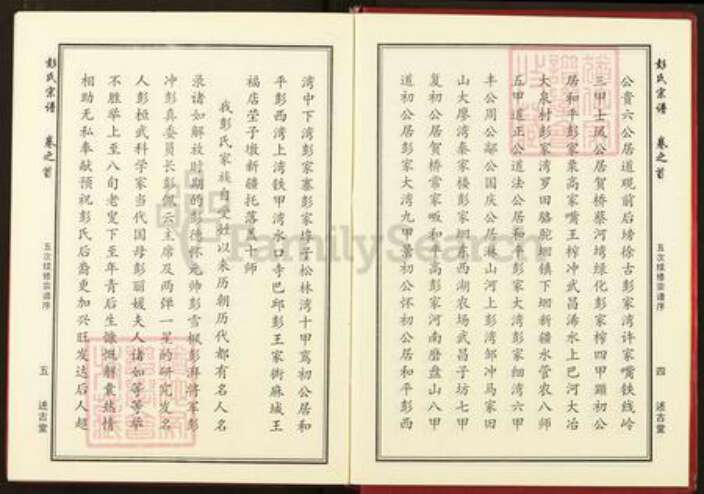 彭氏宗谱 卷之首 五次续修宗谱序 四 述古堂
公贵六公居道观前后塝徐古彭家湾许家嘴铁线岭
三甲士凤公居贺桥蔡河塆绿化彭家榨四甲顕初公
居和平彭家寨高家嘴王榨冲武昌浠水上巴河大冶
大泉村彭家湾罗田骆驼坳镇下坳新疆永管农八师
五甲道正公道法公居和平彭家大湾彭家细湾六甲
丰公周公鄰公国庆公居淋山河上彭湾邹冲马家田
山大廖湾秦家楼彭家垌东西湖农场武昌子坊七甲
复初公居贺桥常家畈和平高彭家河南磨盘山八甲
道初公居彭家大湾九甲景初公怀初公居和平彭西
湾中下湾彭家寨彭家埻子松林湾十甲寓初公居和
平彭西湾上湾铁甲湾水口寺巴邱彭王家街麻城王
福店茔子墩新疆托落八十师
我彭氏家族自受姓以来历朝历代都有名人名
录诸如解放时期的德怀元帅彭雪枫彭湃将军彭
冲彭真委员长彭佩云主席及两弹一星的研究发名
人彭桓武科学家当代国母彭丽媛夫人诸如等等举
不胜举上至八旬老叟下至年青后生慷慨解囊热情
相助无私奉献预祝彭氏后裔更加兴旺发达后人超
彭氏宗谱 卷之首 五次续修宗谱序 五 述古堂
FamilySearch